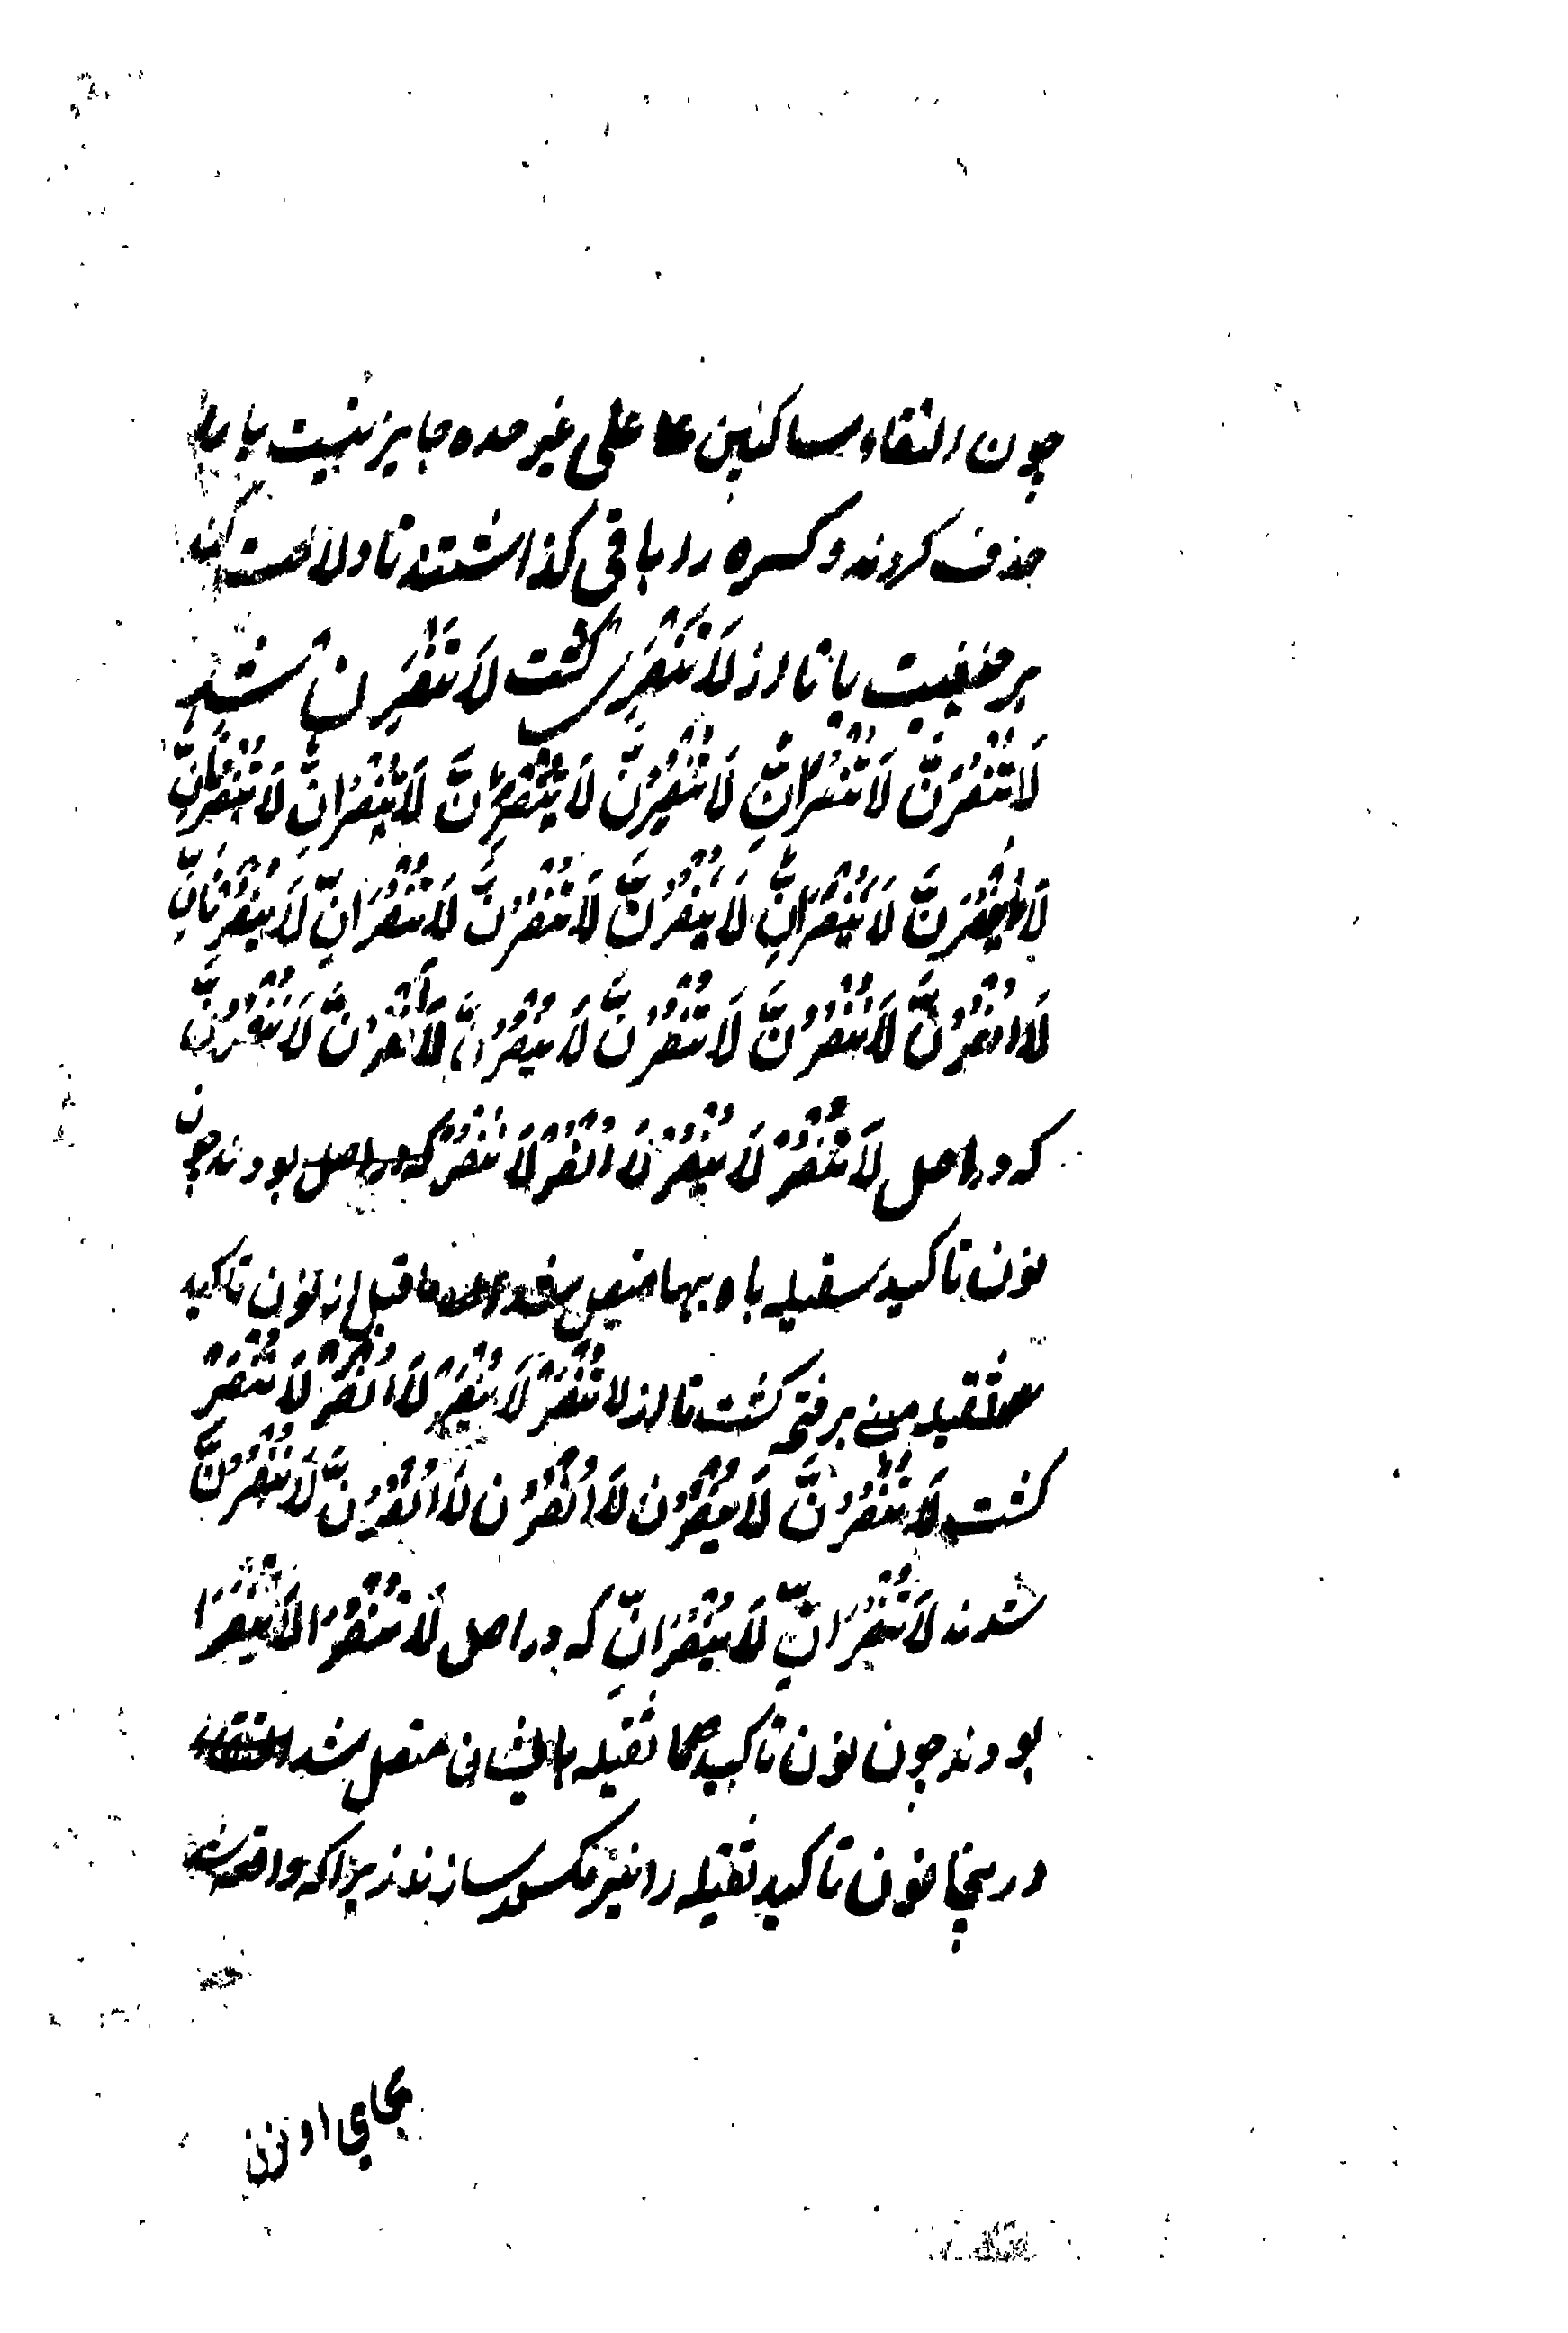 چون التقاء ساکنین علی غیر حده جایز نیست یا را
حذف کردند و کسره را باقی کذاشتند تا دلالت کند
بر حذفیت یا تا از لَا تَنْصُرِی کشت لَا تَنْصُرِنَّ شد
لَا تُنْصَرَنَّ لَا تُنْصَرَانِّ لَا تُنْصَرُنَّ لَا تُنْصَرِنَّ لَا تُنْصَرَانِّ لَا تُنْصَرْنَانِّ
لَا یُنْصَرَنَّ لَا یُنْصَرَانِّ لَا یُنْصَرُنَّ لَا تُنْصَرَنَّ لَا تُنْصَرَانِّ لَا یُنْصَرْنَانِّ
لَا اُنْصَرَنَّ لَا نُنْصَرَنَّ لَا تُنْصَرَنَّ لَا یُنْصَرَنَّ لَا نُنْصَرَنَّ
که در اصل لَا تُنْصَرْ لَا یُنْصَرْ لَا اُنْصَرْ لَا نُنْصَرْ بودند چون
نون تاکید سقیله باوبها متصل شد ما قبل از نون تاکید
ثقیله مبنی بر فتح کشت تا از لا تُنْصَرْ لَا یُنْصَرْ لَا اُنْصَرْ لَا نُنْصَرْ
کشت لَا تُنْصَرَنَّ لَا یُنْصَرَنَّ لَا اُنْصَرَنَّ لَا نُنْصَرَنَّ
شدند لَا تُنْصَرَانِّ لَا یُنْصَرَانِّ که در اصل لَا تُنْصَرَا لَا یُنْصَرَا
بودند چون نون تاکید ثقیله باایشان متصل شد
درینجا نون تاکید ثقیله را نیز مکسور سازند زیراکه واقع شد
بجای او نون